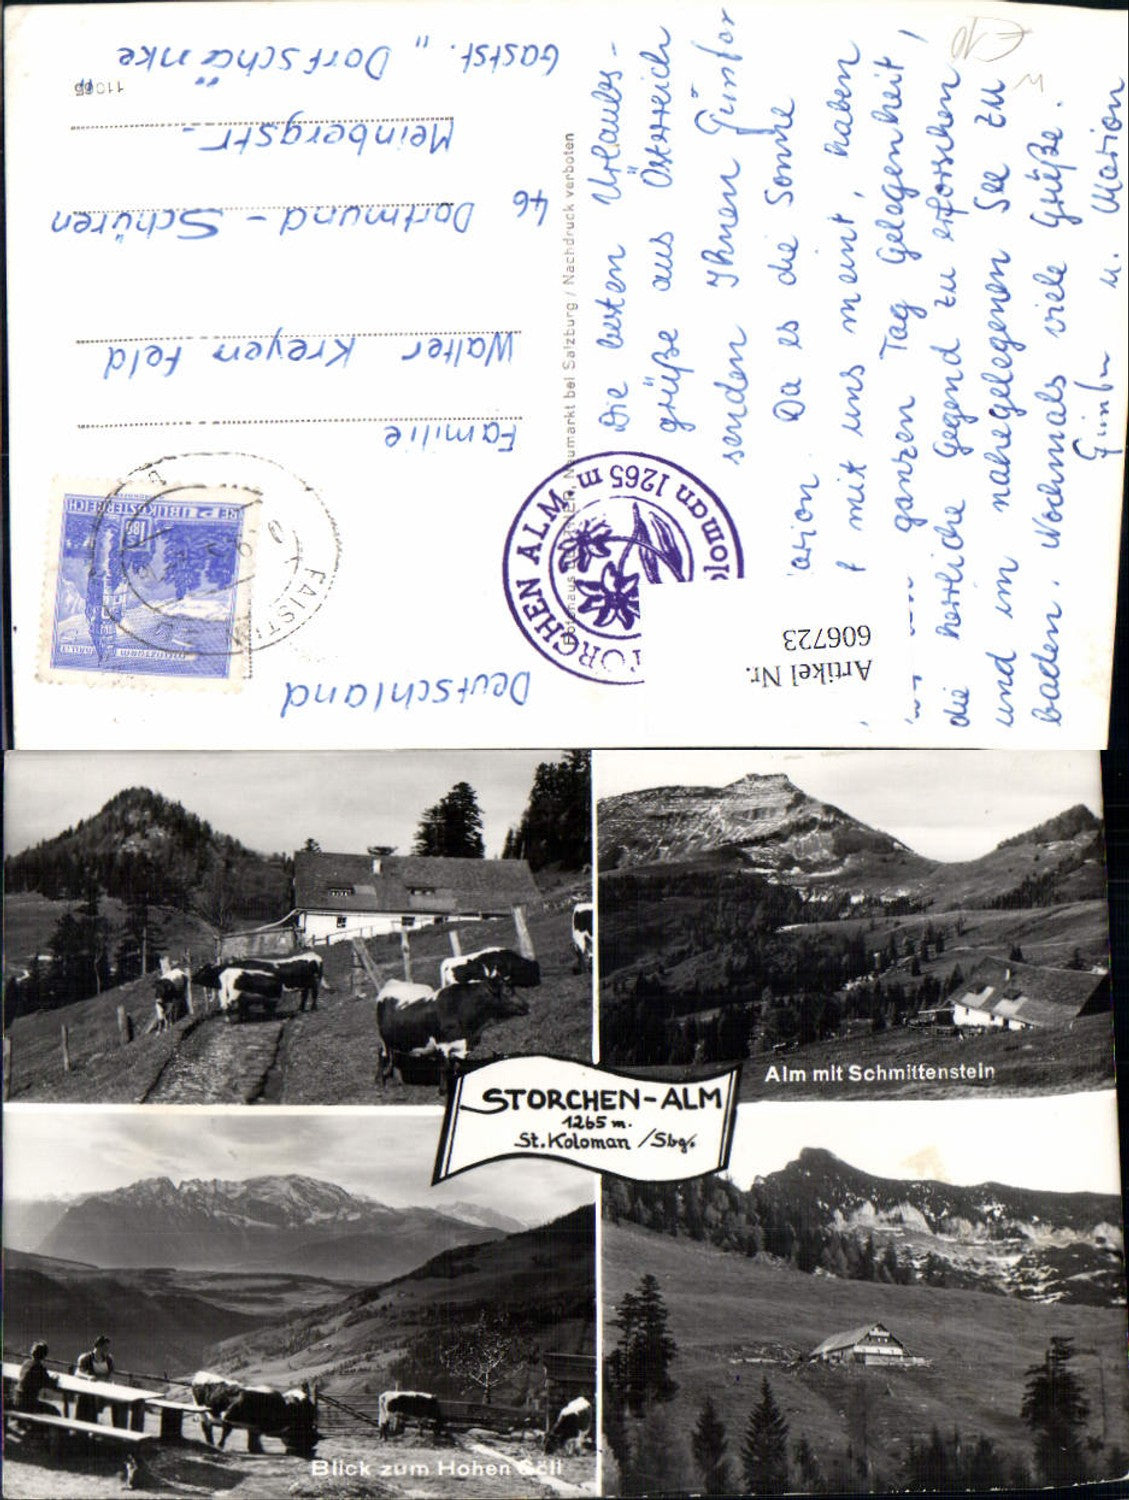 Die besten Urlaubs-
grüße aus Österreich
senden Ihnen Günter
arion. Da es die Sonne
mit uns meint, haben
ganzen Tag Gelegenheit,
die herrliche Gegend zu erforschen
und im nahegelegenen See zu
baden. Nochmals viele Grüße.
Günter u. Marion
€ 10
Neumarkt bei Salzburg / Nachdruck verboten
STORCHEN ALM 1265 m
Koloman 1265 m
Artikel Nr.
606723
Familie
Walter Kreyenfeld
46 Dortmund - Schüren
Meinbergstr.
Gastst. „Dorfschänke
Deutschland
11065
REPUBLIK ÖSTERREICH
S 1.80
MÜNZTURM HALL
FAISTENAU
Alm mit Schmittenstein
STORCHEN-ALM
1265 m.
St. Koloman /Sbg.
Blick zum Hohen Göll